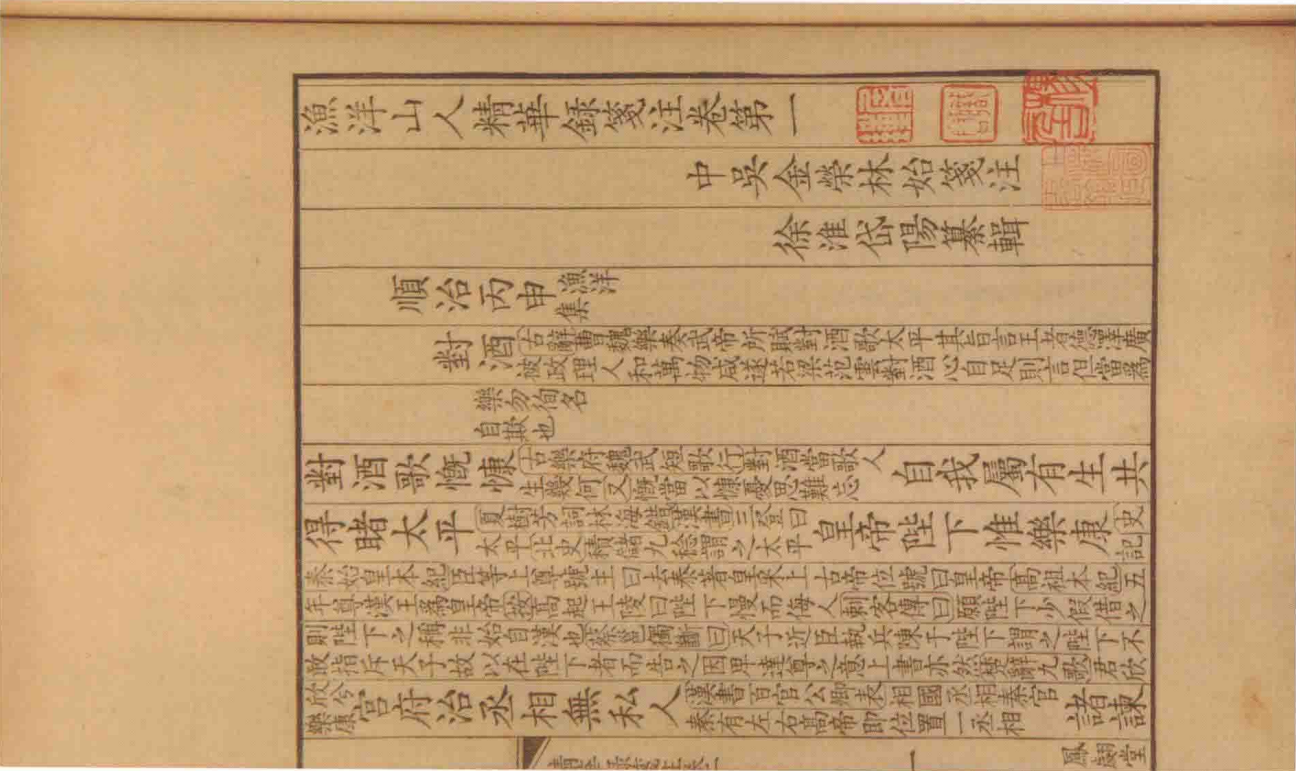 漁洋山人精華録箋注卷第一
中吳金榮林始箋注
徐淮岱陽纂輯
順治丙申漁洋集
對酒古辭曹魏樂奏武帝所賦對酒歌太平其旨言王者德澤廣被政理人和萬物咸遂若梁范雲對酒心自足則言但當為
樂勿徇名自欺也
對酒歌慨慷古樂府魏武短歌行對酒當歌人生幾何又慨當以慷憂思難忘自我屬有生共
得睹太平夏樹芳詞林海錯漢書三登曰太平北史積儲九稔謂之太平皇帝陛下惟樂康史記
秦始皇本紀臣等上尊號王曰去泰著皇采上古帝位號曰皇帝高祖本紀五
年尊漢王為皇帝按高起王陵曰陛下慢而侮人刺客傳曰願陛下少假借之
則陛下之稱非始自漢也蔡邕獨斷曰天子近臣執兵陳于陛下謂之陛下不
敢指斥天子故以在陛下者而告之因卑達尊之意上書亦然楚辭九歌君欣
欣兮樂康宮府治丞相無私人漢書百官公卿表相國丞相秦官秦有左右高帝即位置一丞相諸諫
鳳翽堂